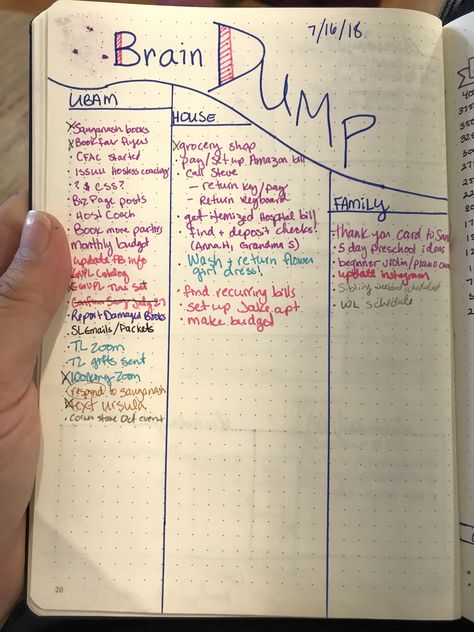 Brain DUMP
7/16/18
UBAM
x Sauganash books
x Book fair flyers
· CFAC started
· Issuu Hostess coaching
· ? $ CSS?
· Biz Page posts
· Host Coach
· Book more parties
· monthly budget
· update FB info
catalog
· Report Damaged Books
· SL Emails/Packets
· TL zoom
· TL gifts sent
x Wkday zoom
· respond to sauganash
x text Ursula
· Corn store Oct event
HOUSE
x grocery shop
· pay/set up Amazon bill
· call Steve
– return key/pay
– Return keyboard
· get itemized Hospital bill
· find + deposit checks!
(Anna H, Grandma S)
· Wash + return flower
girl dress!
· find recurring bills
· set up Jake apt
· make budget
FAMILY
· thank you card to
· 5 day preschool ideas
· beginner violin/piano
· update instagram
· Sibling weekend scheduled
· WL schedule
20